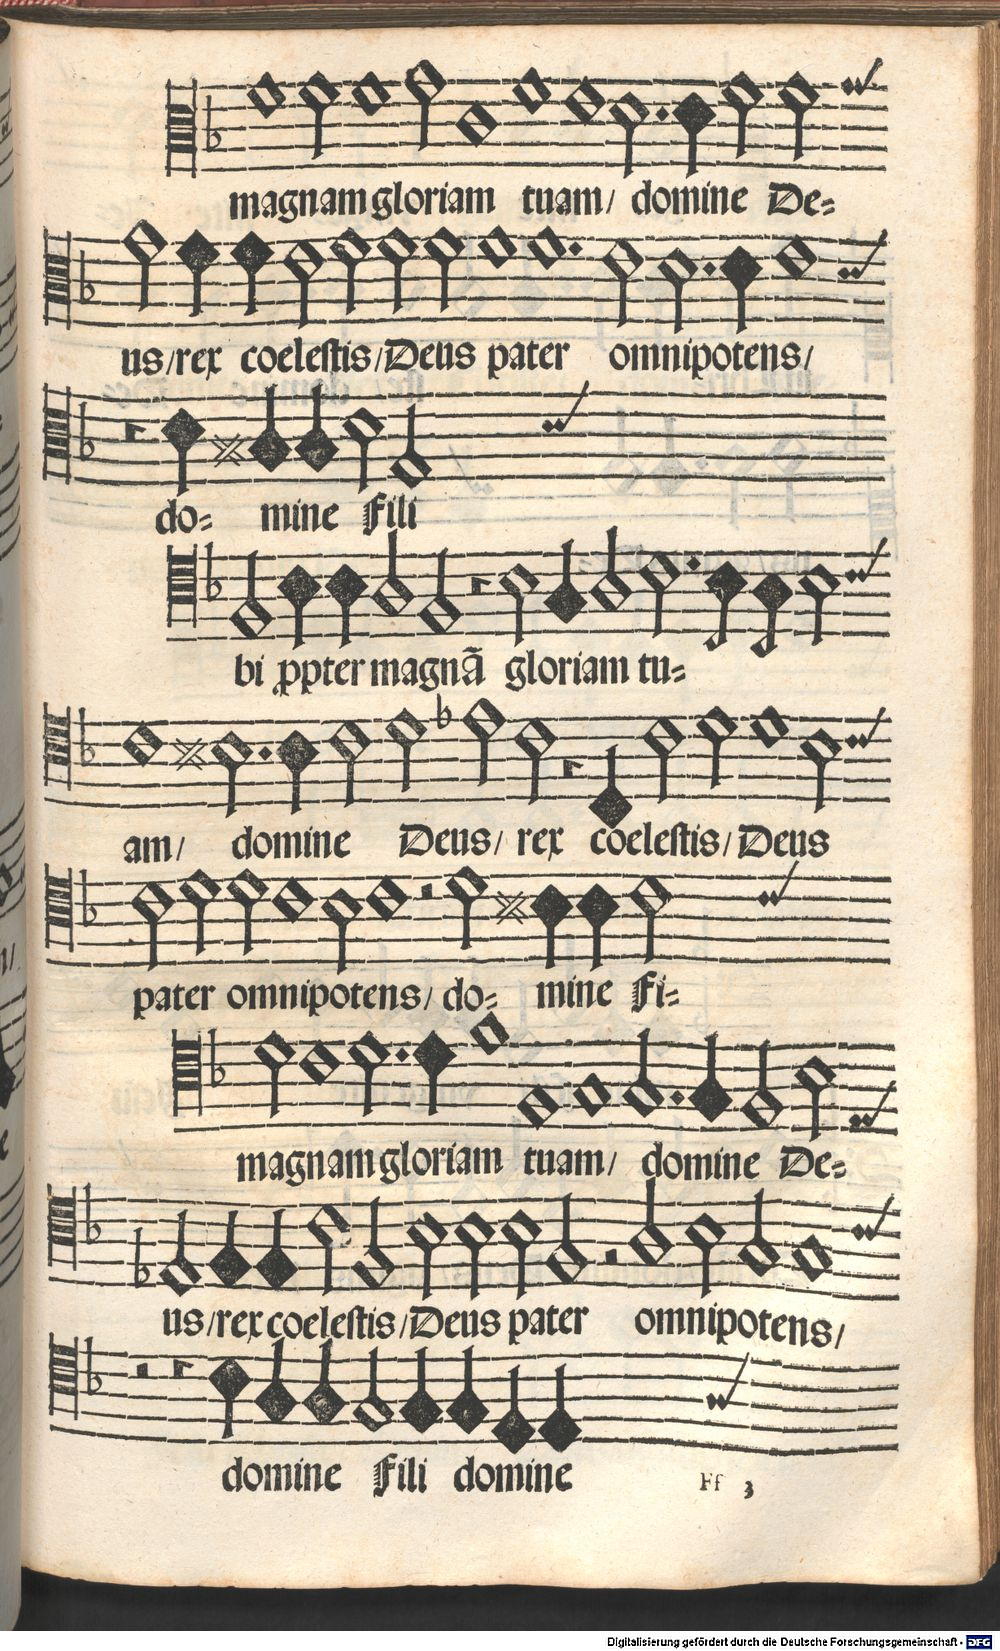 magnam gloriam tuam/ domine De=
us/rex coelestis/Deus pater omnipotens/
do= mine Fili
bi ꝓpter magnā gloriam tu=
am/ domine Deus/ rex coelestis/Deus
pater omnipotens/ do= mine Fi=
magnam gloriam tuam/ domine De=
us/rex coelestis/Deus pater omnipotens/
domine Fili domine
Ff 3
Digitalisierung gefördert durch die Deutsche Forschungsgemeinschaft - DFG